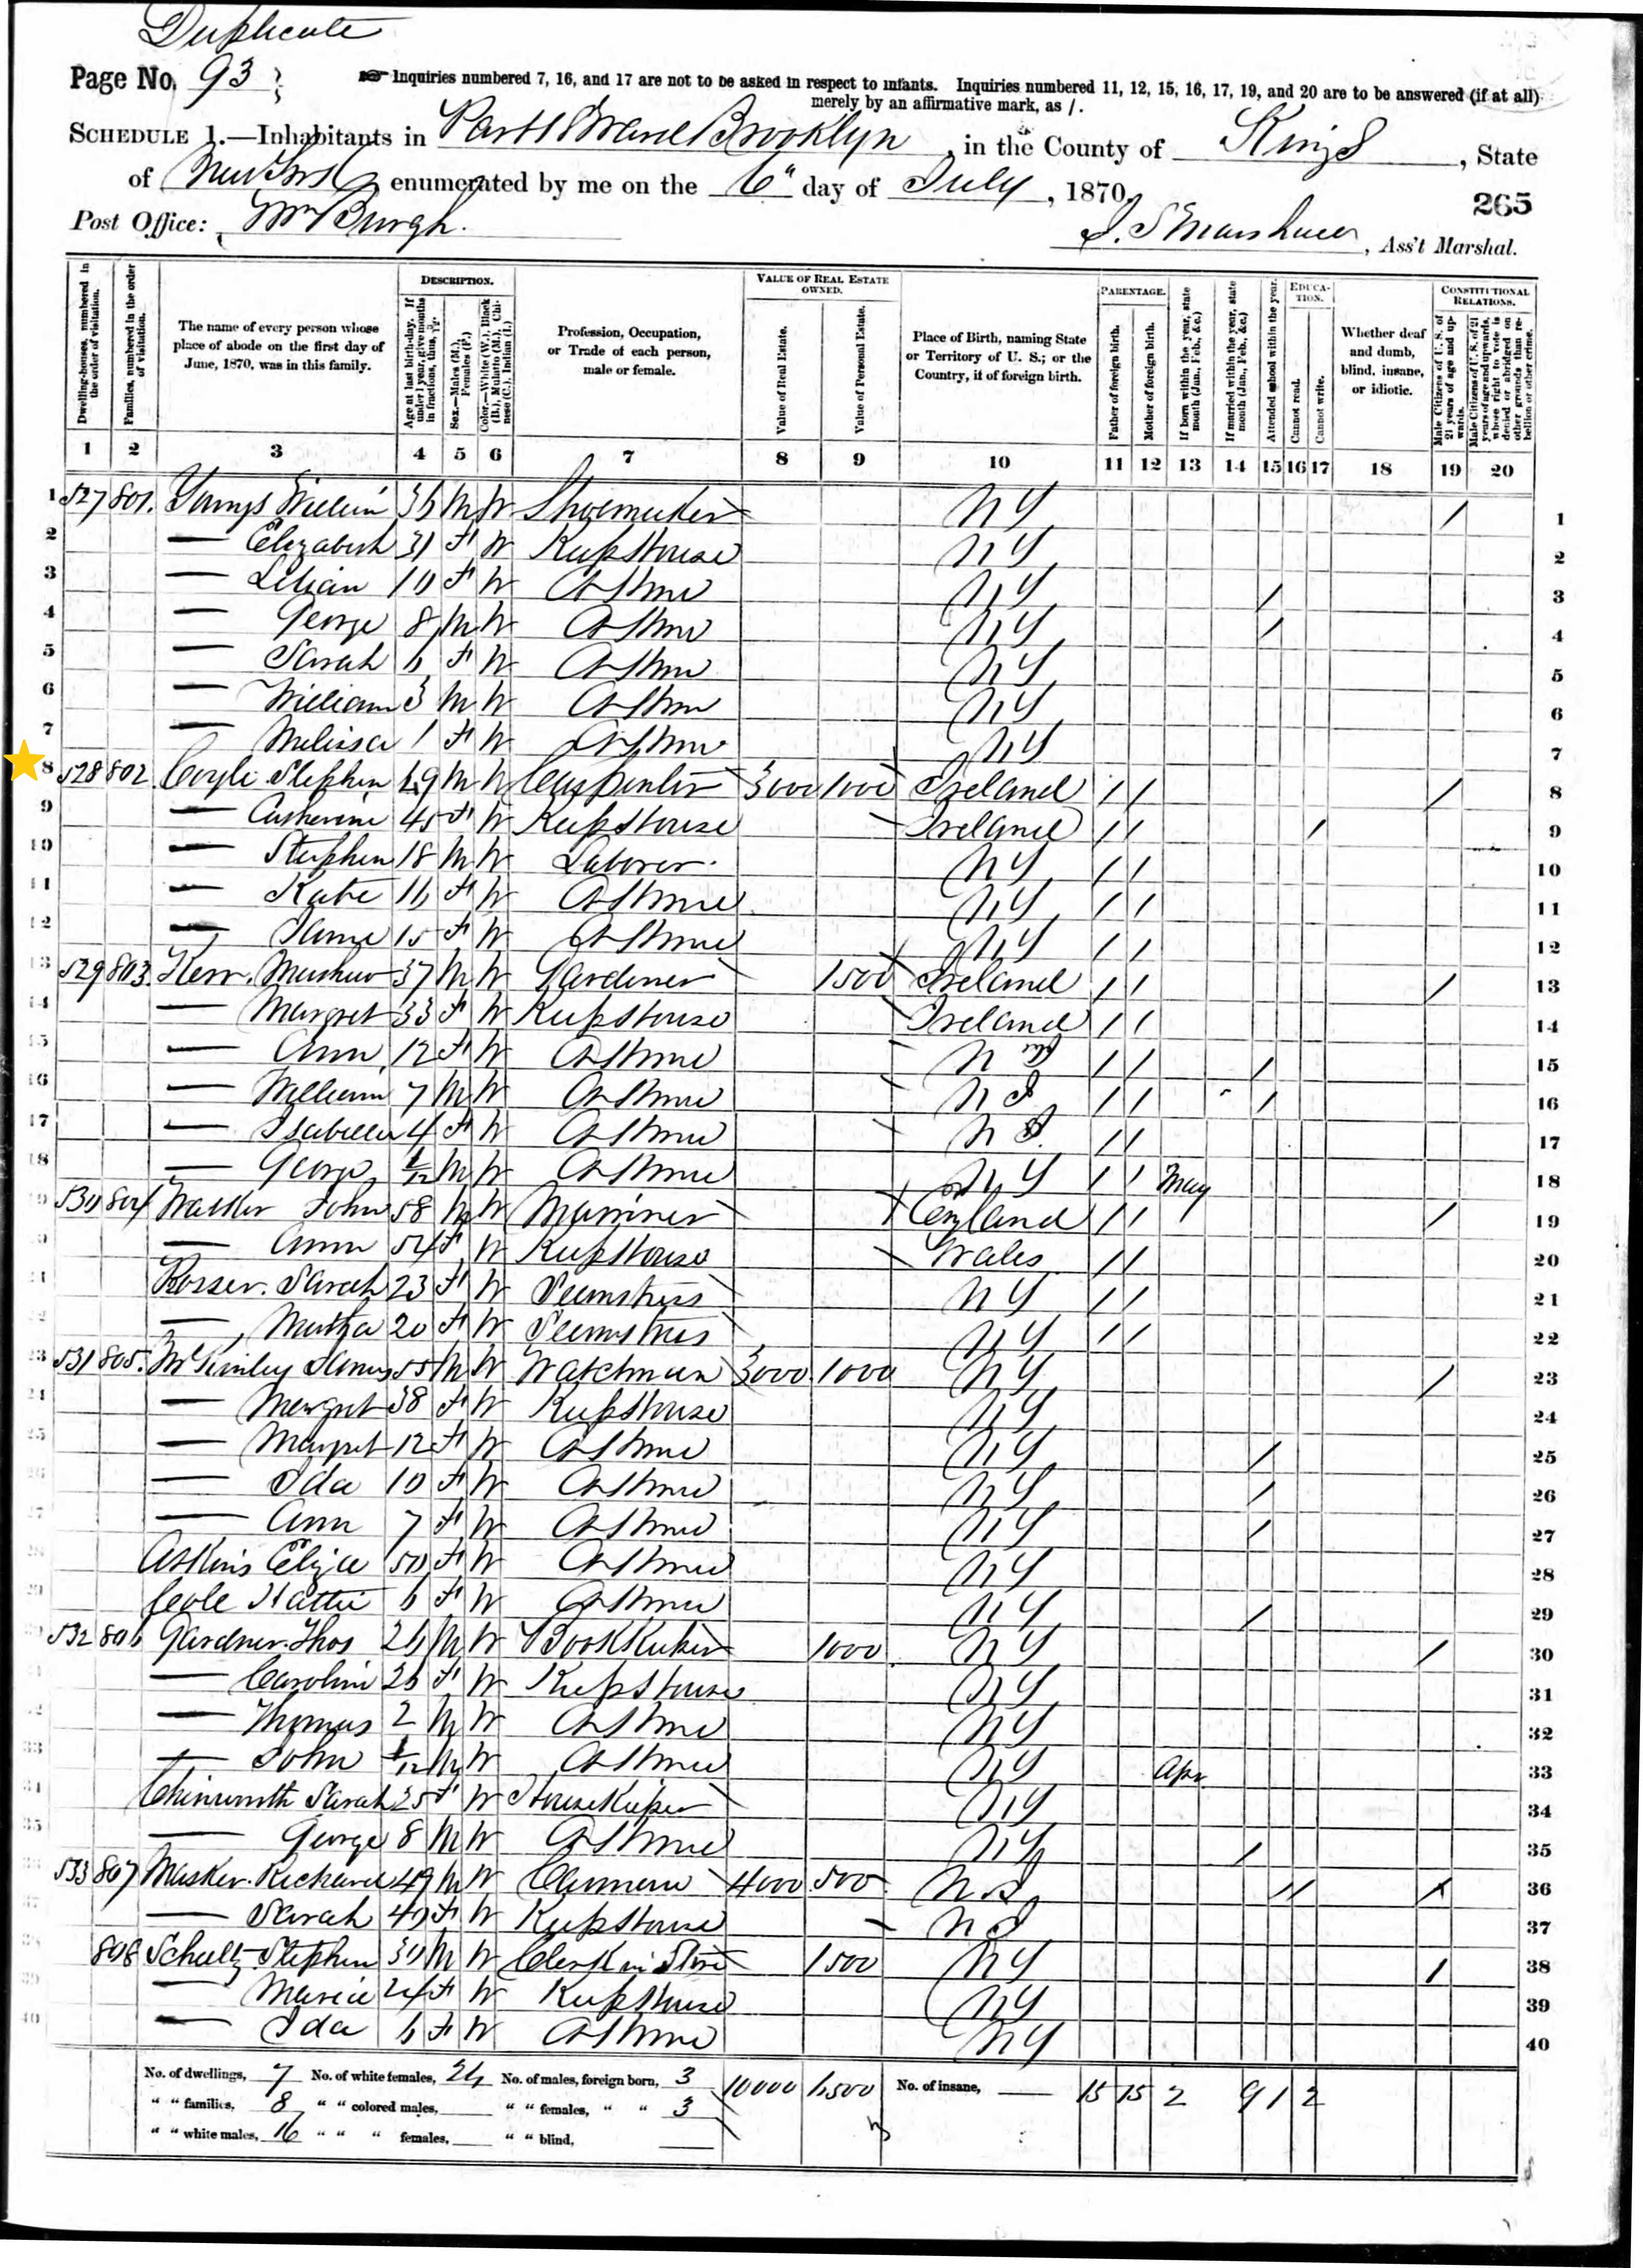 Duplicate
Page No. 93
Inquiries numbered 7, 16, and 17 are not to be asked in respect to infants. Inquiries numbered 11, 12, 15, 16, 17, 19, and 20 are to be answered (if at all)
merely by an affirmative mark, as /.
SCHEDULE 1.—Inhabitants in Part Ward Brooklyn, in the County of Kings, State
of New York, enumerated by me on the 6" day of July, 1870.
265
Post Office: WmBurgh.
Ass't Marshal.
Dwelling-houses, numbered in the order of visitation.
Families, numbered in the order of visitation.
The name of every person whose place of abode on the first day of June, 1870, was in this family.
DESCRIPTION.
Age at last birth-day. If under 1 year, give months in fractions, thus, 3/12.
Sex.—Males (M.), Females (F.)
Color.—White (W.), Black (B.), Mulatto (M.), Chinese (C.), Indian (I.)
Profession, Occupation, or Trade of each person, male or female.
VALUE OF REAL ESTATE OWNED.
Value of Real Estate.
Value of Personal Estate.
Place of Birth, naming State or Territory of U. S.; or the Country, if of foreign birth.
PARENTAGE.
Father of foreign birth.
Mother of foreign birth.
If born within the year, state month (Jan., Feb., &c.)
If married within the year, state month (Jan., Feb., &c.)
EDUCATION.
Attended school within the year.
Cannot read.
Cannot write.
Whether deaf and dumb, blind, insane, or idiotic.
CONSTITUTIONAL RELATIONS.
Male Citizens of U. S. of 21 years of age and upwards.
Male Citizens of U. S. of 21 years of age and upwards, whose right to vote is denied or abridged on other grounds than rebellion or other crime.
1 2 3 4 5 6 7 8 9 10 11 12 13 14 15 16 17 18 19 20
1 527 801 William 36 M W Shoemaker NY / 1
2 — Elizabeth 31 F W Keeps House NY 2
3 — Lilian 10 F W At Home NY / 3
4 — George 8 M W At Home NY / 4
5 — Sarah 6 F W At Home NY 5
6 — William 3 M W At Home NY 6
7 — Melissa 1 F W At Home NY 7
8 528 802 Coyle Stephen 49 M W Carpenter 3000 1000 Ireland / / / 8
9 — Catherine 45 F W Keeps House Ireland / / / 9
10 — Stephen 18 M W Laborer NY / / 10
11 — Kate 16 F W At Home NY / / 11
12 — 15 F W At Home NY / / 12
13 529 803 Kerr. 37 M W Gardener 1500 Ireland / / / 13
14 — Margret 33 F W Keeps House Ireland / / 14
15 — Ann 12 F W At Home / / / 15
16 — William 7 M W At Home N J / / / 16
17 — Isabella 4 F W At Home N J / / 17
18 — George 1/12 M W At Home NY / / May 18
19 530 804 Walker John 58 M W Marriner England / / / 19
20 — Ann 54 F W Keeps House Wales / / 20
21 Rosser. Sarah 23 F W Seemstress NY / / 21
22 — Martha 20 F W Seemstress NY / / 22
23 531 805 McKinley James 55 M W Watchman 3000 1000 NY / 23
24 — Margret 38 F W Keeps House NY 24
25 — Margret 12 F W At Home NY / 25
26 — Ida 10 F W At Home NY / 26
27 — Ann 7 F W At Home NY / 27
28 Askins Eliza 50 F W At Home NY 28
29 Cole Hattie 6 F W At Home NY / 29
30 532 806 Gardner. Thos 26 M W Book Keeper 1000 NY / 30
31 — Caroline 26 F W Keeps House NY 31
32 — Thomas 2 M W At Home NY 32
33 — John M W At Home NY Apr 33
34 Sarah 25 F W House Keeper NY 34
35 — George 8 M W At Home NY / 35
36 533 807 Masker. Richard 49 M W 4000 500 N J / / / 36
37 — Sarah F W Keeps House N J 37
38 808 Schultz Stephen 30 M W Clerk in Store 1500 NY / 38
39 — Maria 24 F W Keeps House NY 39
40 — Ida 6 F W At Home NY 40
No. of dwellings, 7 No. of white females, 24 No. of males, foreign born, 3 10000 6500 No. of insane, — 15 15 2 9 1 2
" " families, 8 " " colored males, " " females, " " 3
" " white males, 16 " " " females, " " blind,